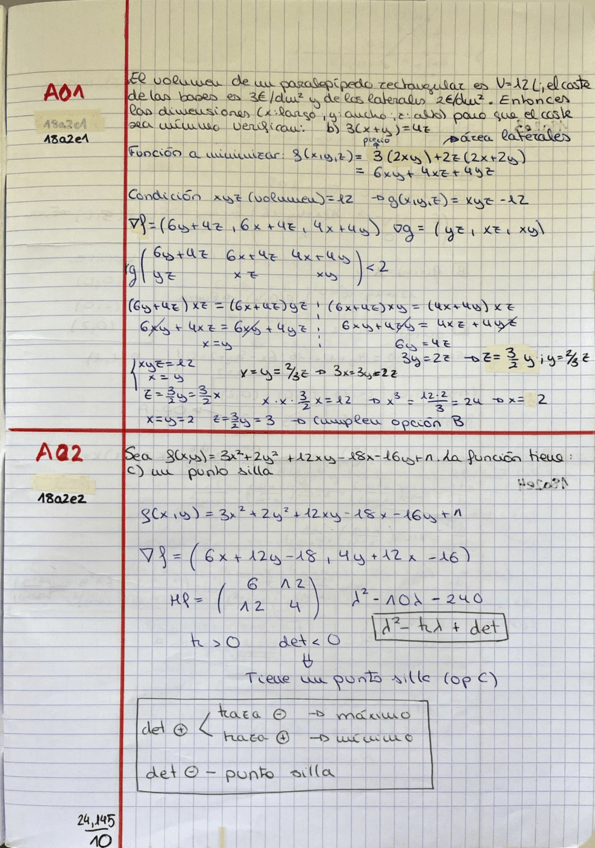 A01
18a2e1
18a2e1
El volumen de un paralepípedo rectangular es V=12 L; el coste
de las bases es 3€/dm² y de los laterales 2€/dm². Entonces
las dimensiones (x:largo, y:ancho, z:alto) para que el coste
sea mínimo verifican: b) 3(x+y)=4z
precio
área laterales
Función a minimizar: f(x,y,z)= 3(2xy)+2z(2x+2y)
= 6xy+4xz+4yz
Condición xyz (volumen)=12 → g(x,y,z)=xyz-12
∇f=(6y+4z, 6x+4z, 4x+4y) ∇g=(yz, xz, xy)
rg ( 6y+4z 6x+4z 4x+4y
yz xz xy ) <2
(6y+4z)xz=(6x+4z)yz ; (6x+4z)xy=(4x+4y)xz
6xy+4xz=6xy+4yz 6xy+4yz=4xz+4yz
x=y 6y=4z
3y=2z → z=3/2 y; y=2/3 z
{ xyz=12
x=y x=y=2/3 z → 3x=3y=2z
z=3/2 y=3/2 x x·x·3/2 x=12 → x³=12·2/3=24 → x= 2
x=y=2 z=3/2 y=3 → cumplen opción B
A02
18a2e2
Sea f(x,y)=3x²+2y²+12xy-18x-16y+1. La función tiene:
c) un punto silla
f(x,y)=3x²+2y²+12xy-18x-16y+1
∇f=(6x+12y-18, 4y+12x-16)
Hf= ( 6 12
12 4 ) λ²-10λ-240
λ²-trλ+det
tr>0 det<0
⇓
Tiene un punto silla (op C)
det ⊕ < traza ⊖ → máximo
traza ⊕ → mínimo
det ⊖ - punto silla
24,145
10